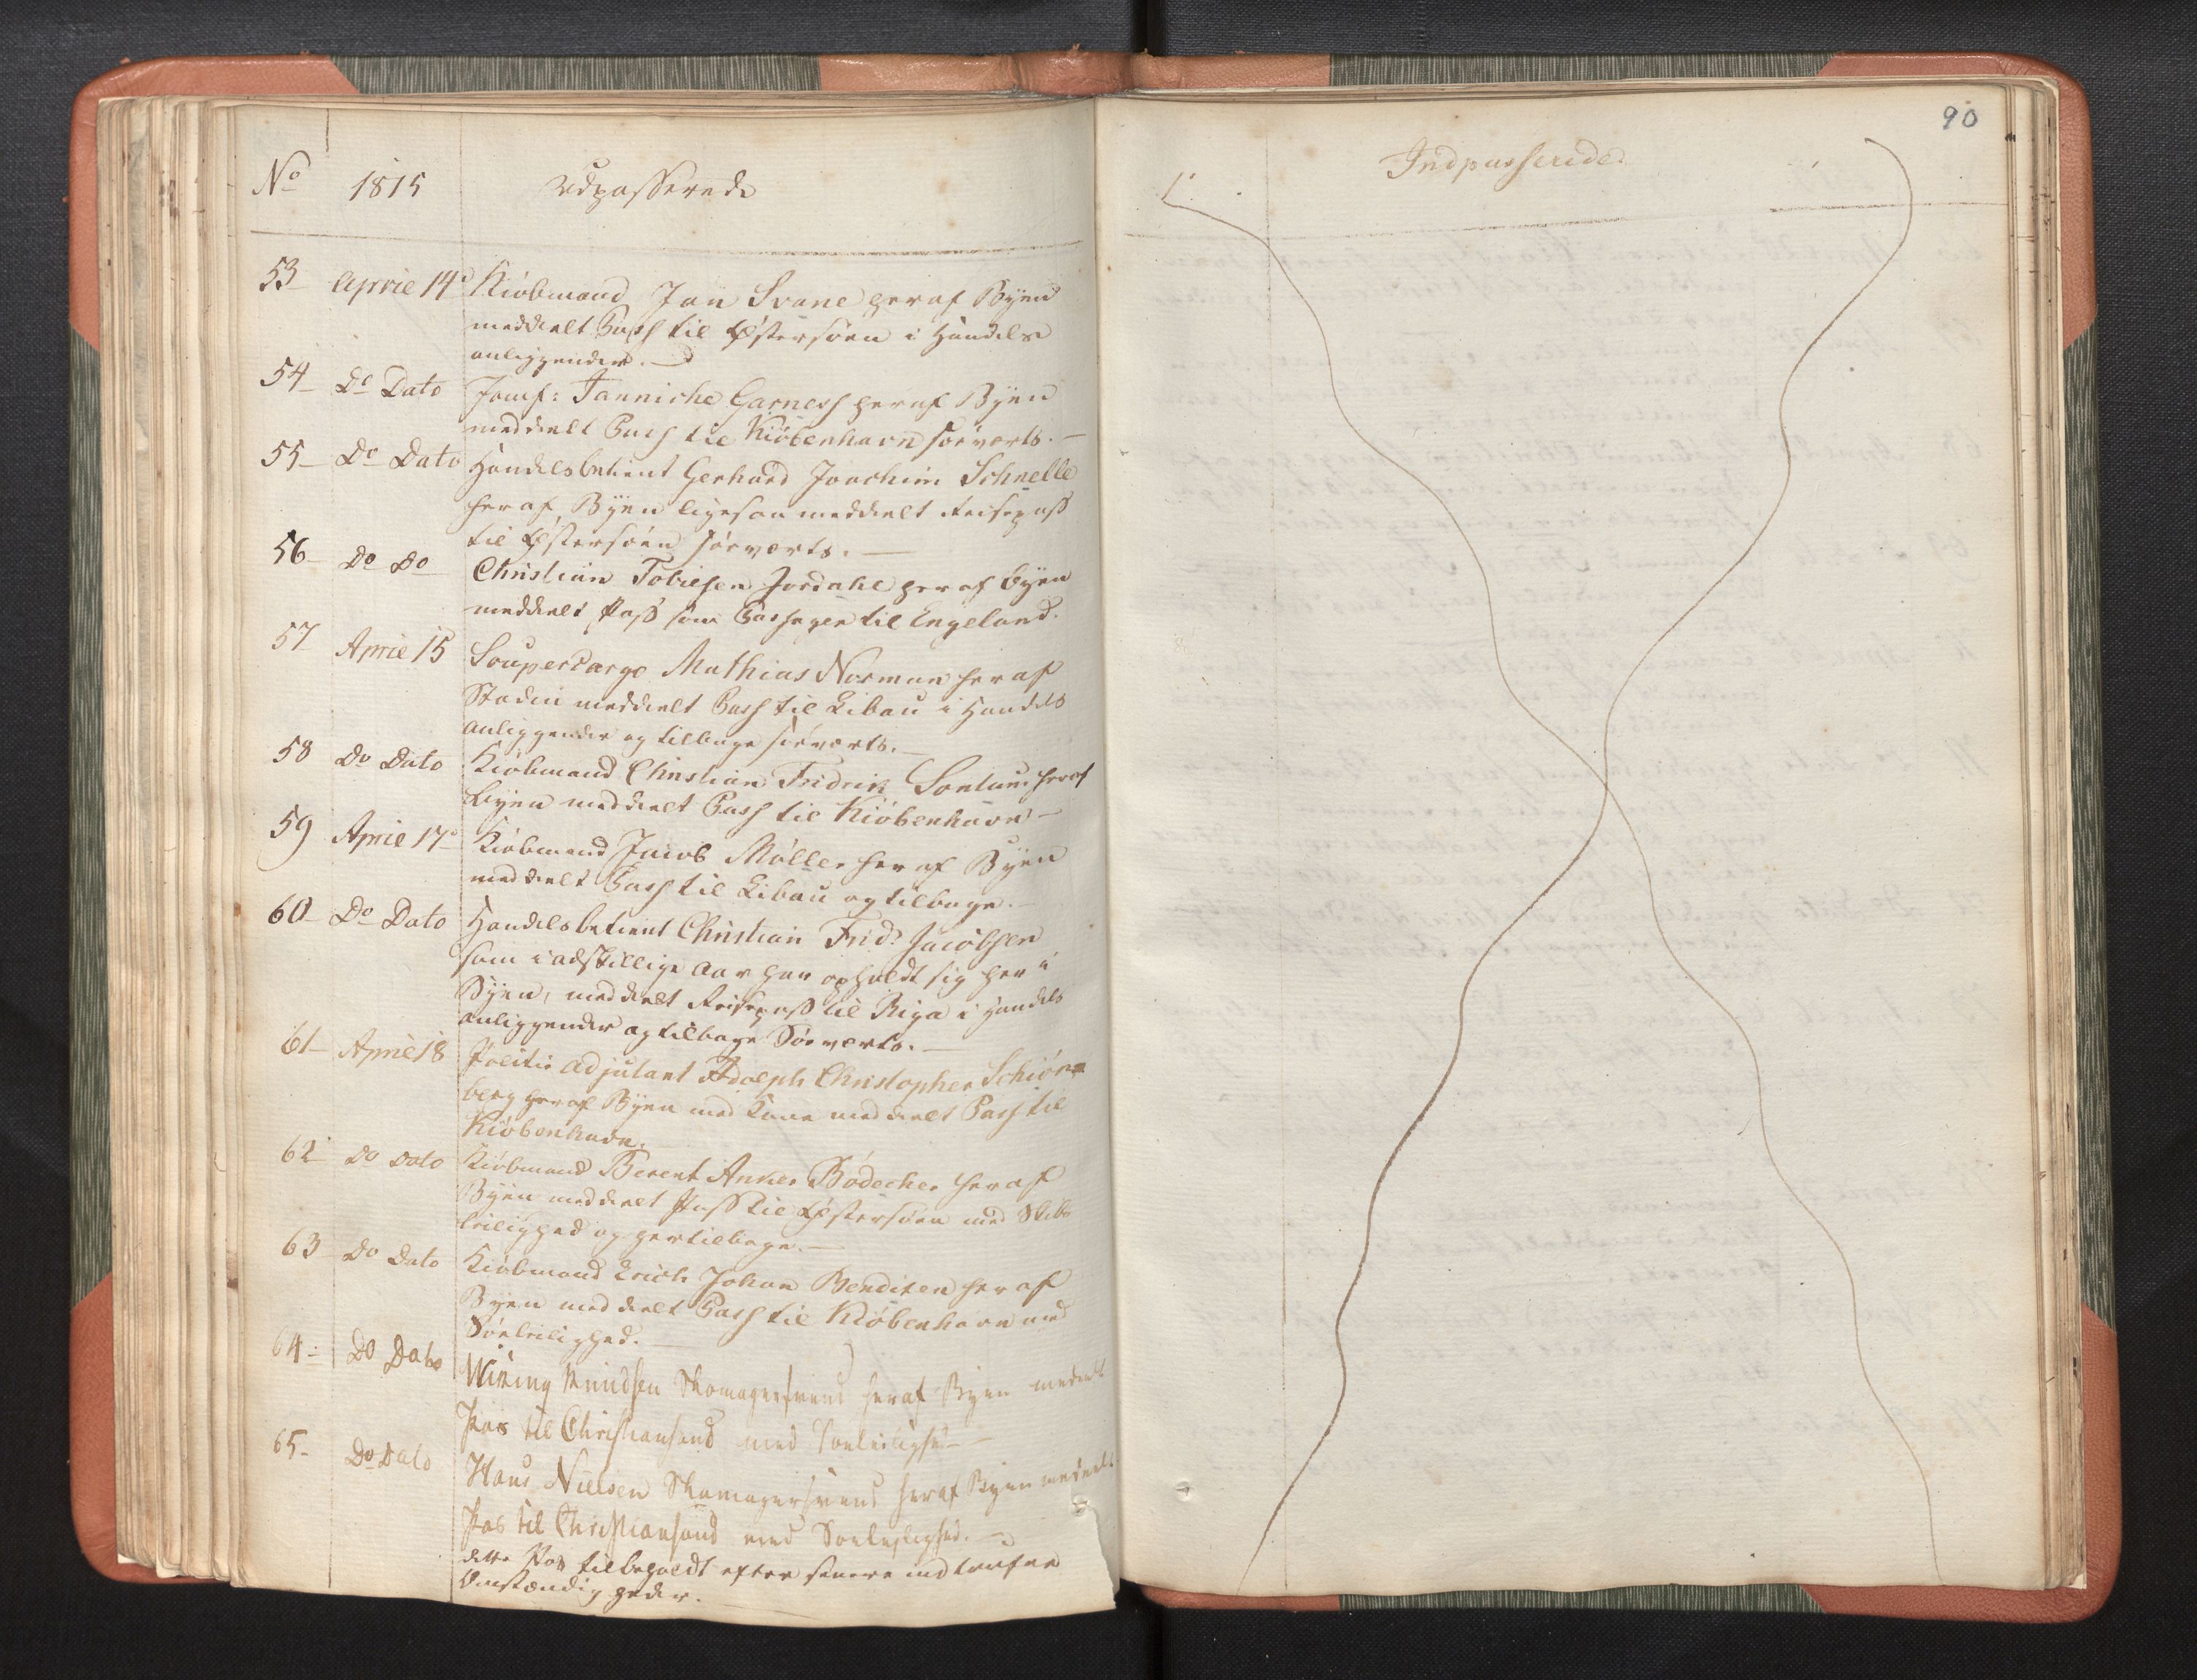 No 1815 Udpasserede
53 Aprill 14de Kiöbmand Jan Svane heraf Byen
meddeelt Pass til Østersöen i Handels
anliggender. —
54 Do Dato Jomf: Janniche Garness heraf Byen
meddeelt Pass til Kiöbenhavn söeværts. —
55 Do Dato Handelsbetient Gerhard Joachim Schnelle
heraf Byen ligesaa meddeelt Reisepass
til Østersöen söeværts. —
56 Do Do Christian Tobiesen Jordahl heraf Byen
meddeelt Pass som Passager til Engeland.
57 Aprill 15 Soupercargo Mathias Norman heraf
Staden meddeelt Pass til Libau i Handels
anliggender og tilbage söeværts. —
58 Do Dato Kiöbmand Christian Fridrik Sontum heraf
Byen meddeelt Pass til Kiöbenhavn —
59 Aprill 17de Kiöbmand Jacob Möller heraf Byen
meddeelt Pass til Libau og tilbage. —
60 Do Dato Handelsbetient Christian Frid: Jacobsen
som i adskillige Aar har opholdt sig her i
Byen, meddeelt Reisepass til Riga i Handels
anliggender og tilbage Söeværts. —
61 Aprill 18 Politie Adjutant Adolph Christopher Schiön-
berg heraf Byen med Kone meddeelt Pass til
Kiöbenhavn. —
62 Do Dato Kiöbmand Berent Anker Bödecher heraf
Byen meddeelt Pass til Østersöen med Skibs
leilighed og hertilbage. —
63 Do Dato Kiöbmand Erich Johan Bendixen heraf
Byen meddeelt Pass til Kiöbenhavn med
Söeleilighed. —
64 Do Dato Wiking Knudsen Skomagersvend heraf Byen medeelt
Pas til Christiansand med Soeleilighed —
65 Do Dato Hans Nielsen Skomagersvend heraf Byen medeelt
Pas til Christiansand med Soeleylighed. —
dette Pas tilbeholdt efter senere indtrufne
Omstændigheder.
90
Indpasserede